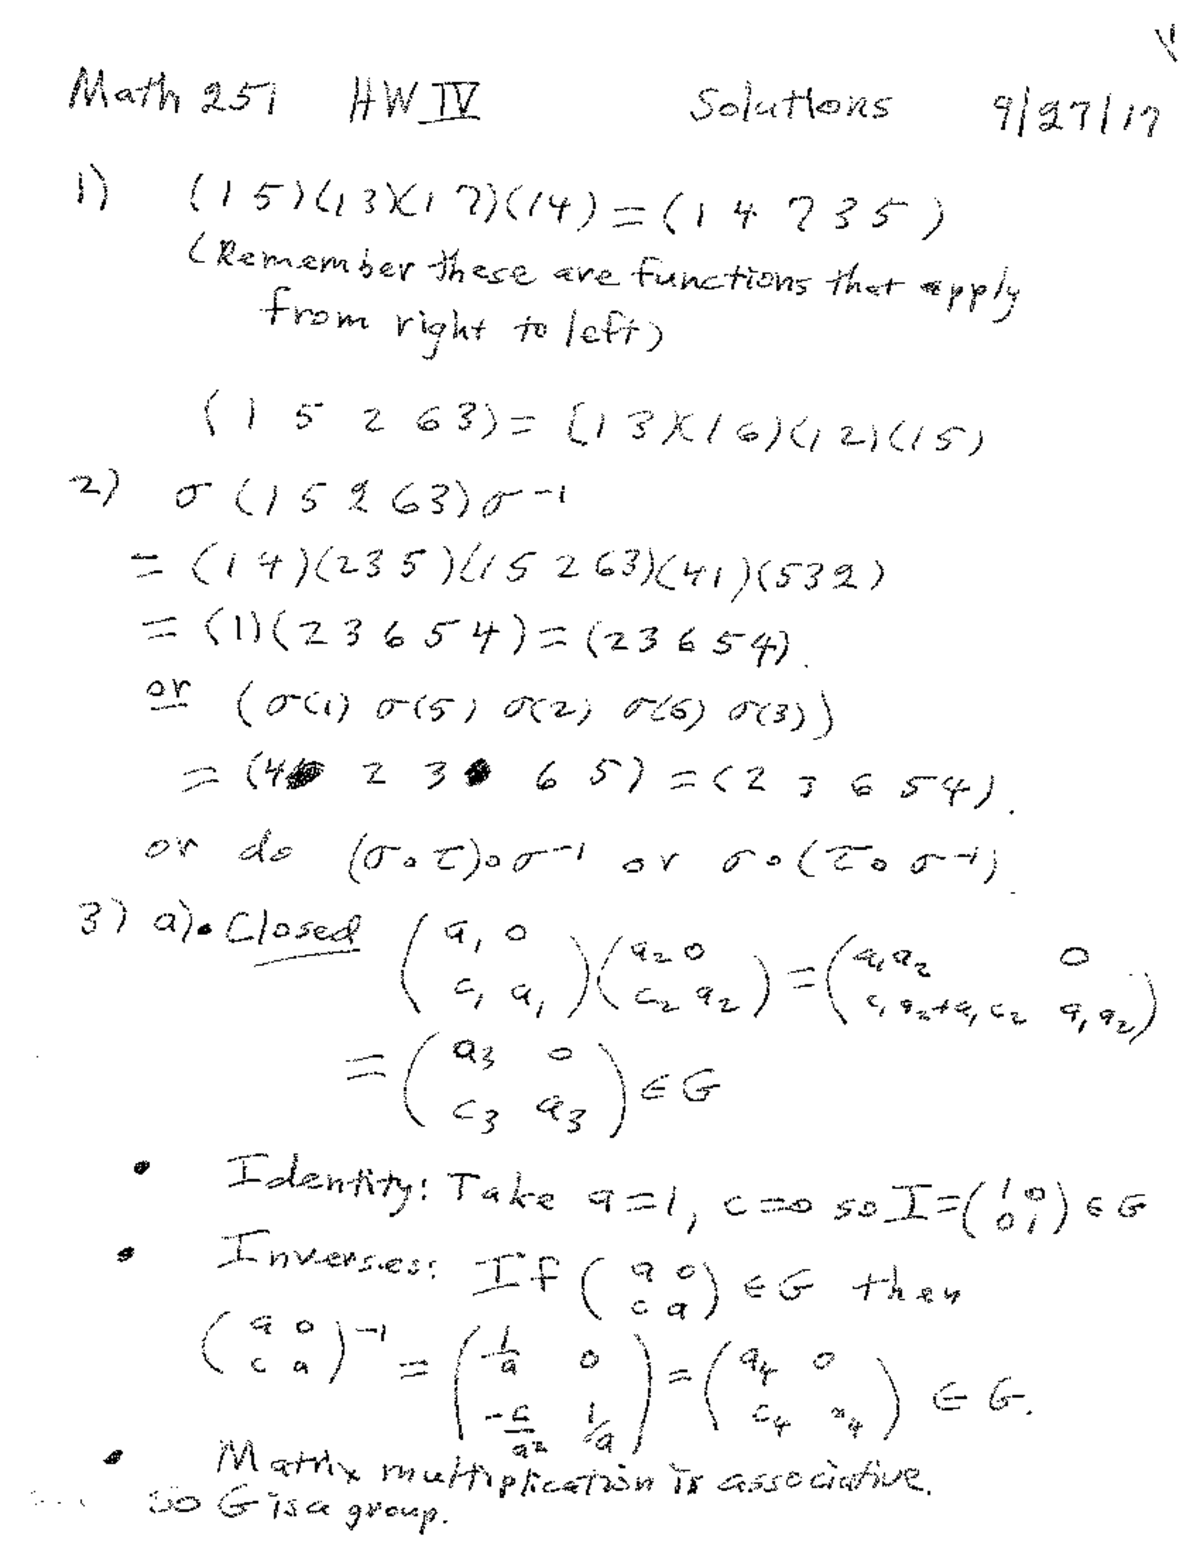 Math 251 HW IV Solutions 9/27/17
1) (1 5)(1 3)(1 7)(1 4) = (1 4 7 3 5)
(Remember these are functions that apply
from right to left)
(1 5 2 6 3) = (1 3)(1 6)(1 2)(1 5)
2) σ (1 5 2 6 3) σ⁻¹
= (1 4)(2 3 5)(1 5 2 6 3)(4 1)(5 3 2)
= (1)(2 3 6 5 4) = (2 3 6 5 4).
or (σ(1) σ(5) σ(2) σ(6) σ(3))
= (4 2 3 6 5) = (2 3 6 5 4).
or do (σ∘τ)∘σ⁻¹ or σ∘(τ∘σ⁻¹).
3) a)• Closed (a₁ 0 / c₁ a₁)(a₂ 0 / c₂ a₂) = (a₁a₂ 0 / c₁a₂+a₁c₂ a₁a₂)
= (a₃ 0 / c₃ a₃) ∈ G
• Identity: Take a=1, c=0 so I=(1 0 / 0 1) ∈ G
• Inverses: If (a 0 / c a) ∈ G then
(a 0 / c a)⁻¹ = (1/a 0 / -c/a² 1/a) = (a₄ 0 / c₄ a₄) ∈ G.
• Matrix multiplication is associative.
So G is a group.